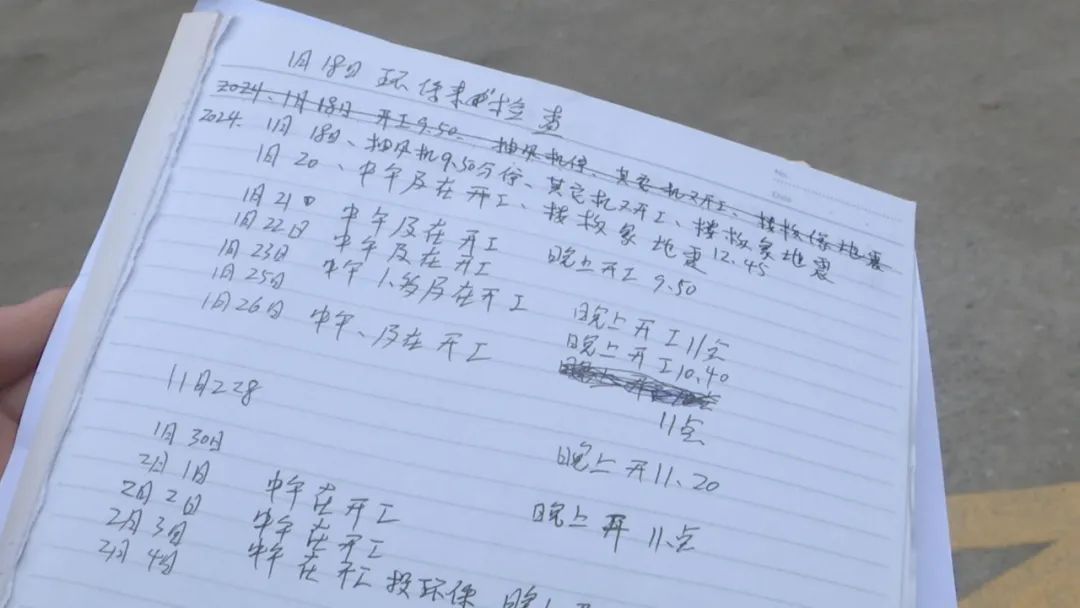 1月18日 环保来检查
2024.1月18日 开工9.50、抽风机停、其它机又开工、接救像地震
2024. 1月18日、抽风机9.50分停、其它机又开工、接救象地震
1月20、中午及在开工、接救象地震12.45
1月21日 中午及在开工 晚上开工9.50
1月22日 中午及在开工
1月23日 中午1.多及在开工 晚上开工11点
1月25日 晚上开工10.40
1月26日 中午、及在开工
11点
11月228
晚上开11.20
1月30日
2月1日 中午在开工 晚上开11点
2月2日 中午在开工
2月3日 中午在开工 投环保 晚上
2月4日